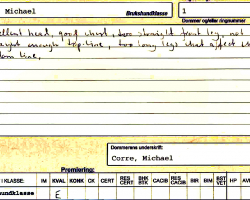 Michael
Brukshundklasse
1
Dommer og/eller ringnummer
ellent head, good chest, too straight front leg, not
enough top line, two long legs what affect is
tom line,
Dommerens underskrift:
Corre, Michael
Premiering:
I KLASSE: IM KVAL KONK CK CERT RES CERT BHK BTK CACIB RES CACIB BIR BIM BST VET HP
undklasse E